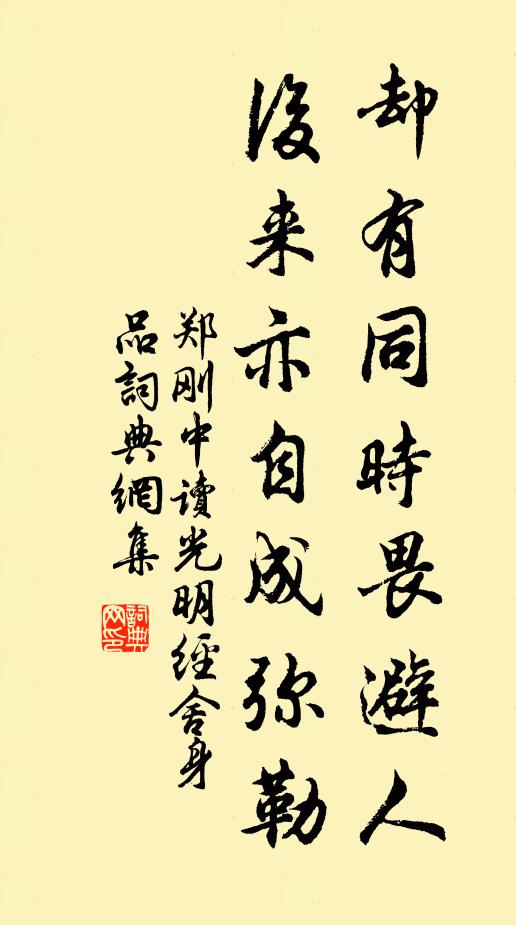 却有同時畏避人
後来亦自成弥勒
郑刚中讀光明經舍身
品詞典網集
詞典网印